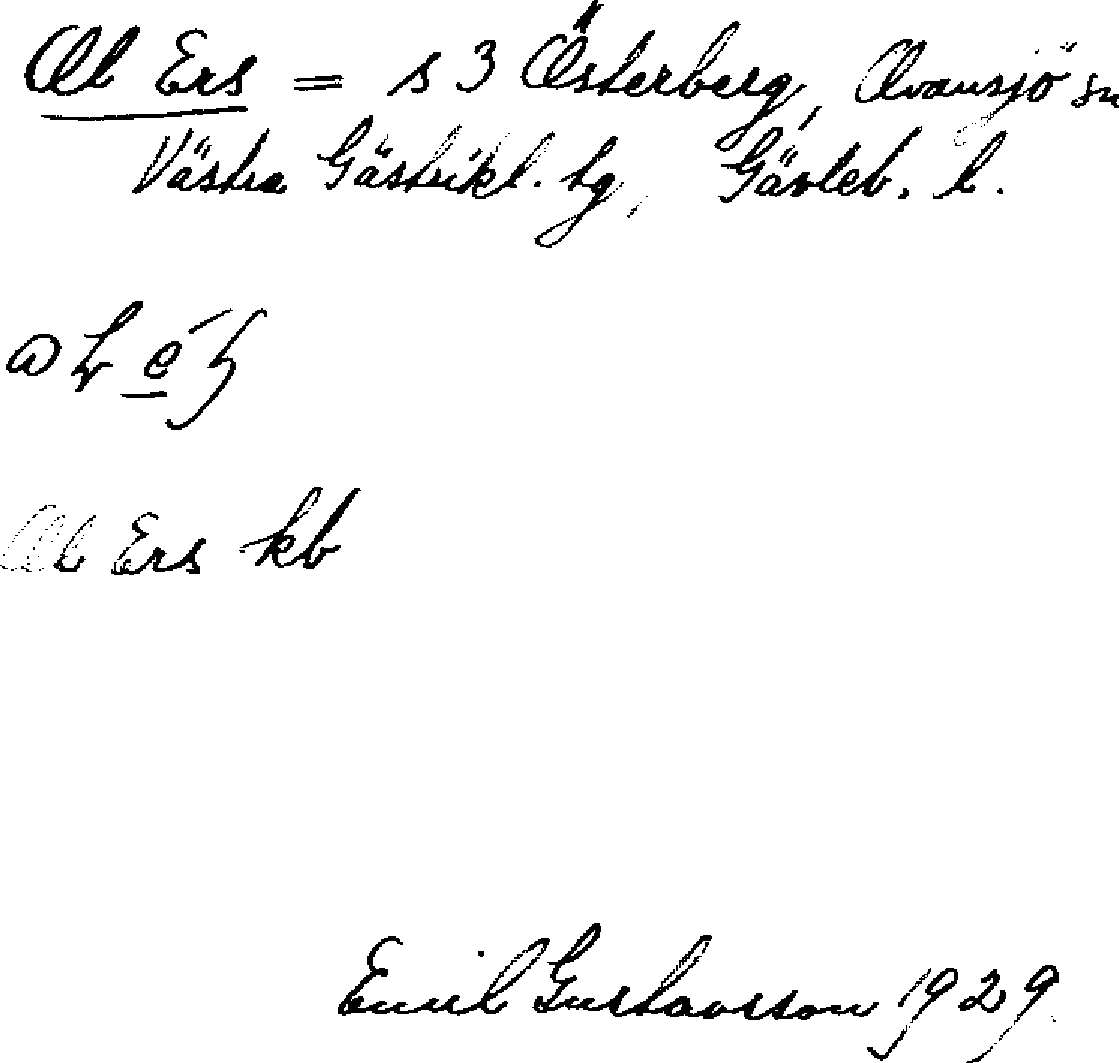 Ol Ers = s 3 Österberg, Ovansjö sn
Västra Gästrikl. tg, Gävleb. l.
Ol Ers kb
Emil Gustavsson 1929.